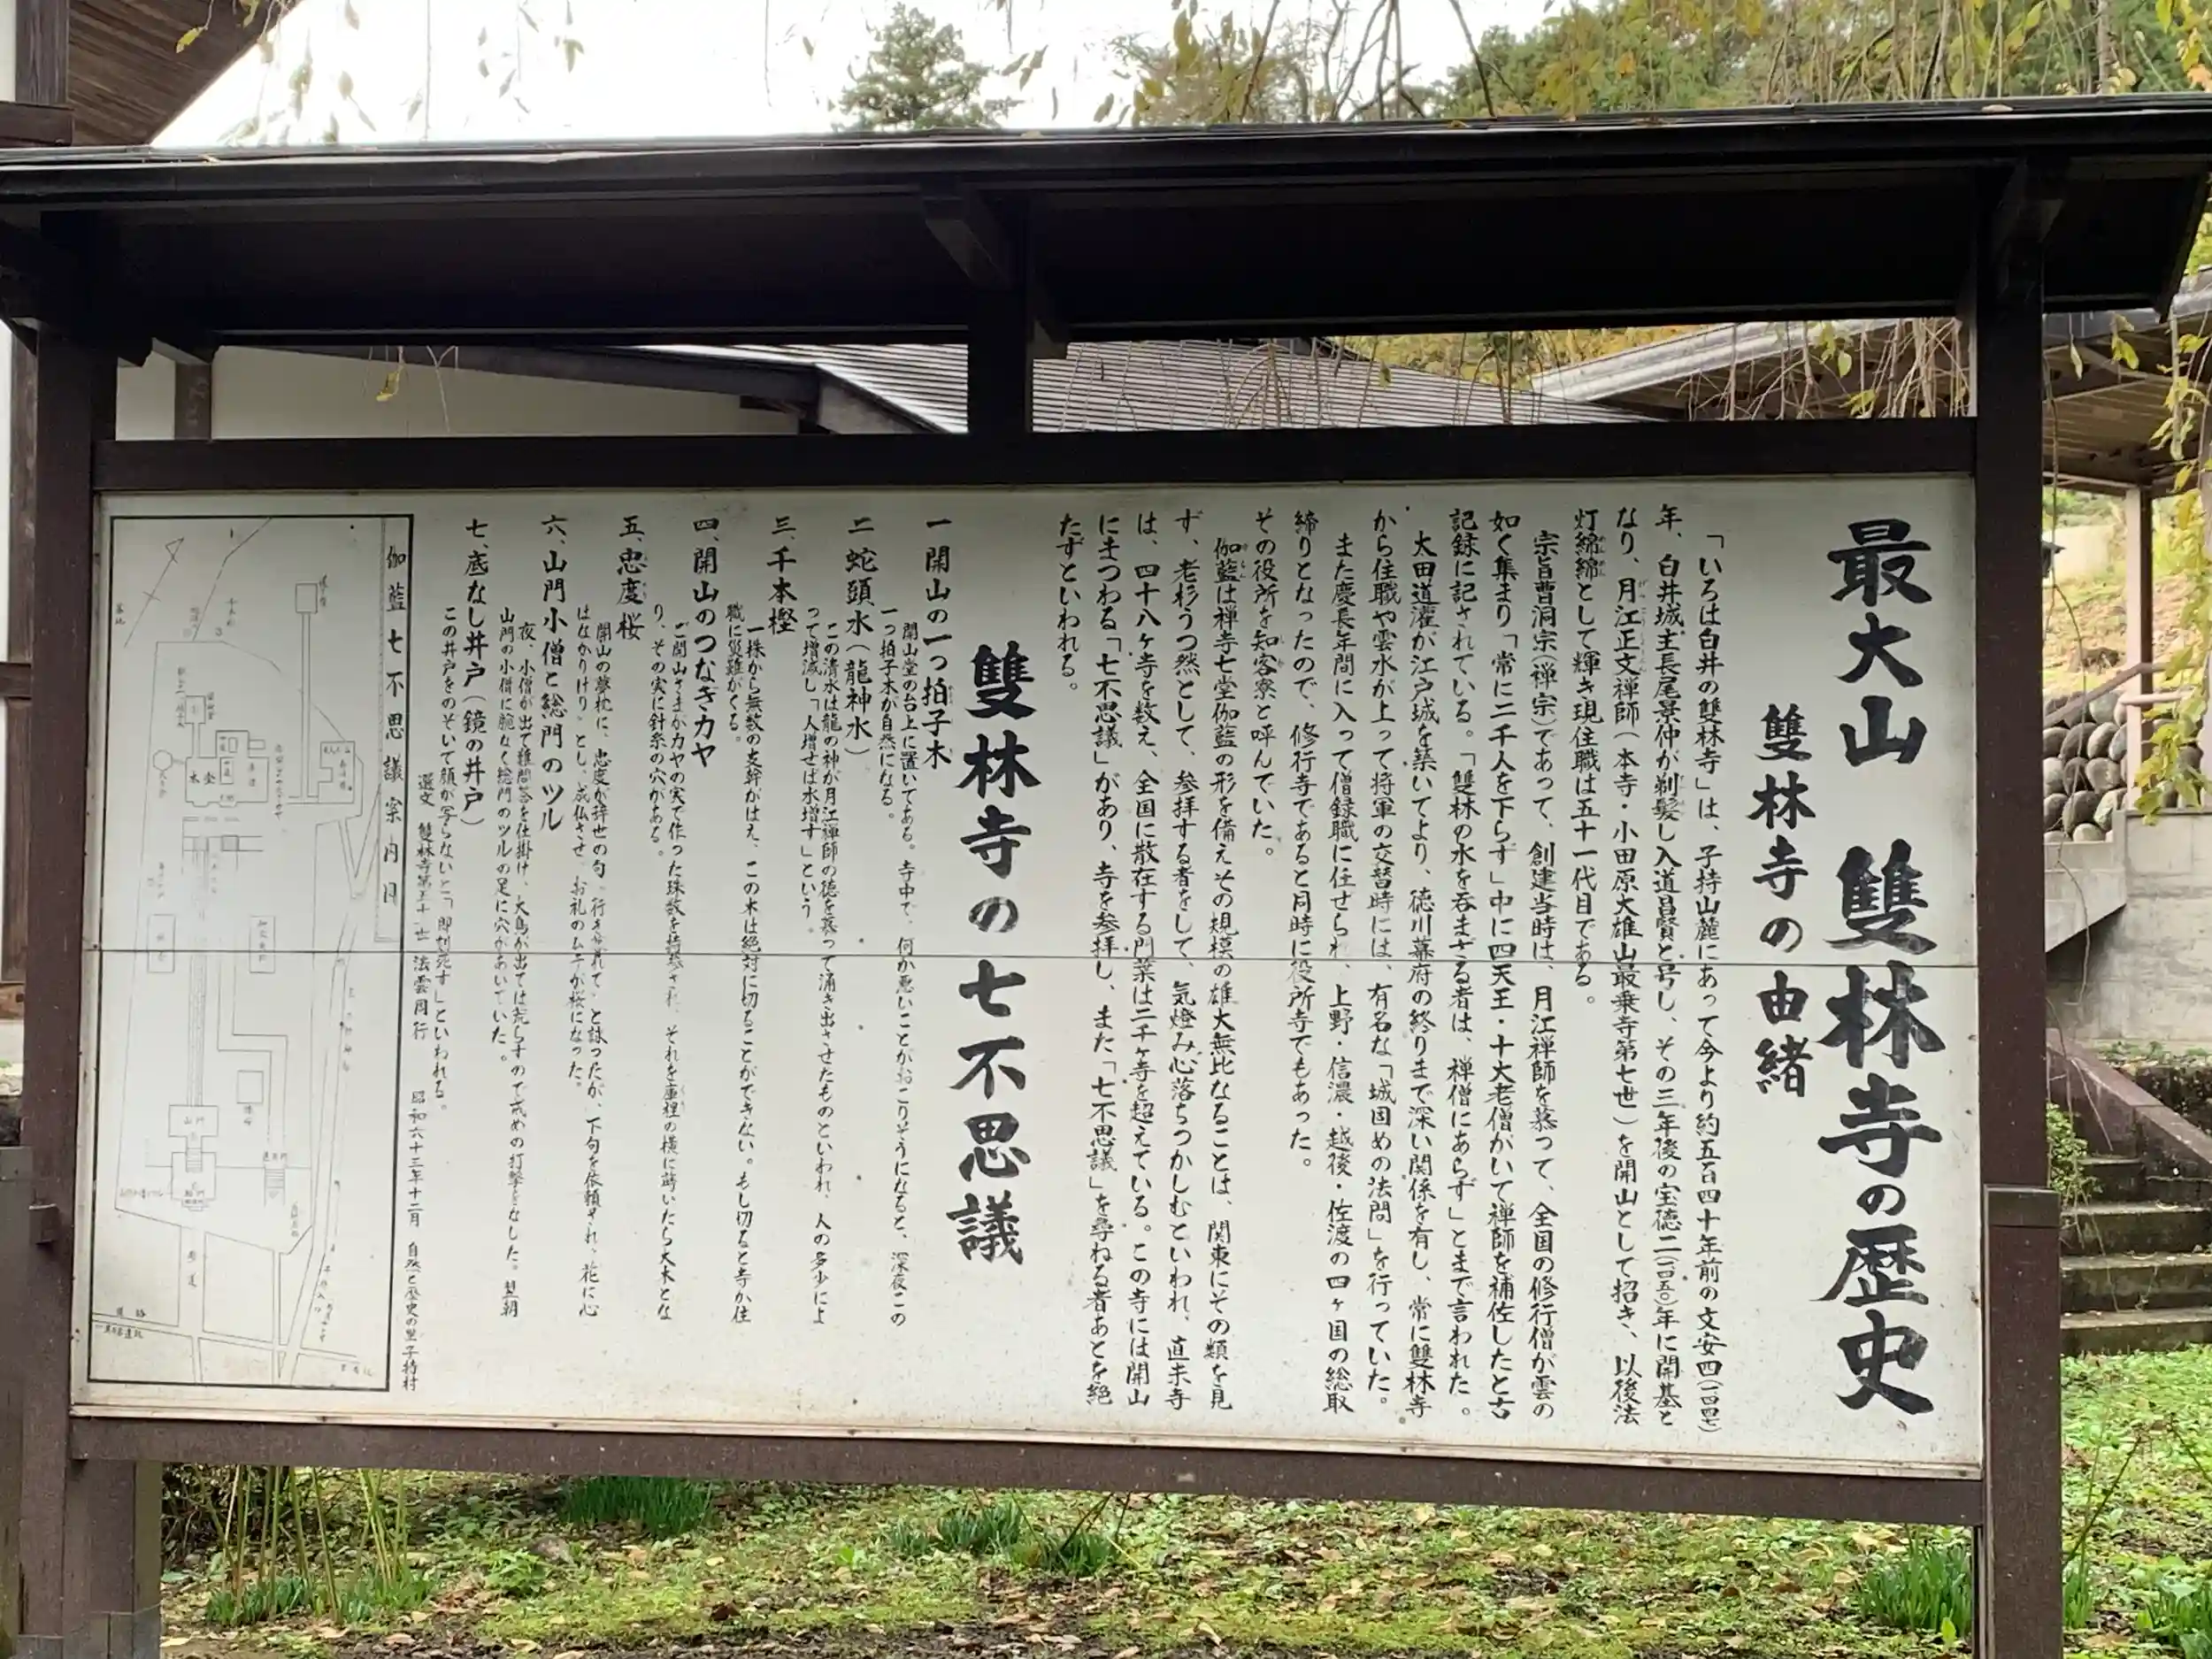 最大山 雙林寺の歴史
雙林寺の由緒
「いろは白井の雙林寺」は、子持山麓にあって今より約五百四十年前の文安四(一四四七)
年、白井城主長尾景仲が剃髪し入道昌賢と号し、その三年後の宝徳二(一四五〇)年に開基と
なり、月江正文禅師(本寺・小田原大雄山最乗寺第七世)を開山として招き、以後法
灯綿綿として輝き現住職は五十一代目である。
宗旨曹洞宗(禅宗)であって、創建当時は、月江禅師を慕って、全国の修行僧が雲の
如く集まり「常に二千人を下らず」中に四天王・十大老僧がいて禅師を補佐したと古
記録に記されている。「雙林の水を呑まざる者は、禅僧にあらず」とまで言われた。
大田道灌が江戸城を築いてより、徳川幕府の終りまで深い関係を有し、常に雙林寺
から住職や雲水が上って将軍の交替時には、有名な「城固めの法問」を行っていた。
また慶長年間に入って僧録職に任せられ、上野・信濃・越後・佐渡の四ヶ国の総取
締りとなったので、修行寺であると同時に役所寺でもあった。
その役所を知客寮と呼んでいた。
伽藍は禅寺七堂伽藍の形を備えその規模の雄大無比なることは、関東にその類を見
ず、老杉うつ然として、参拝する者をして、気燈み心落ちつかしむといわれ、直末寺
は、四十八ヶ寺を数え、全国に散在する門葉は二千ヶ寺を超えている。この寺には開山
にまつわる「七不思議」があり、寺を参拝し、また「七不思議」を尋ねる者あとを絶
たずといわれる。
雙林寺の七不思議
一 開山の一つ拍子木
開山堂の台上に置いてある。寺中で、何か悪いことがおこりそうになると、深夜この
一つ拍子木が自然になる。
二 蛇頭水(龍神水)
この清水は龍の神が月江禅師の徳を慕って涌き出させたものといわれ、人の多少によ
って増減し「人増せば水増す」という。
三、千本樫
一株から無数の支幹がはえ、この木は絶対に切ることができない。もし切ると寺か住
職に災難がくる。
四、開山のつなぎカヤ
ご開山さまがカヤの実で作った珠数を持参され、それを庫裡の横に蒔いたら大木とな
り、その実に針糸の穴がある。
五、忠度桜
開山の夢枕に、忠度が辞世の句。行き暮れて、と詠ったが、下句を依頼され、花に心
はなかりけり」とし、成仏させ、お礼のムチが桜になった。
六、山門小僧と総門のツル
夜、小僧が出て難問答を仕掛け、大鳥が出ては荒らすので戒めの打撃をなした。翌朝
山門の小僧に腕なく総門のツルの足に穴があいていた。
七、底なし井戸(鏡の井戸)
この井戸をのぞいて顔が写らないと「即刻死す」といわれる。
選文 雙林寺第五十一世 法雲周行 昭和六十三年十二月 自然と歴史の里子持村
伽藍七不思議案内図
本堂
山門
総門
参道
道路
墓地